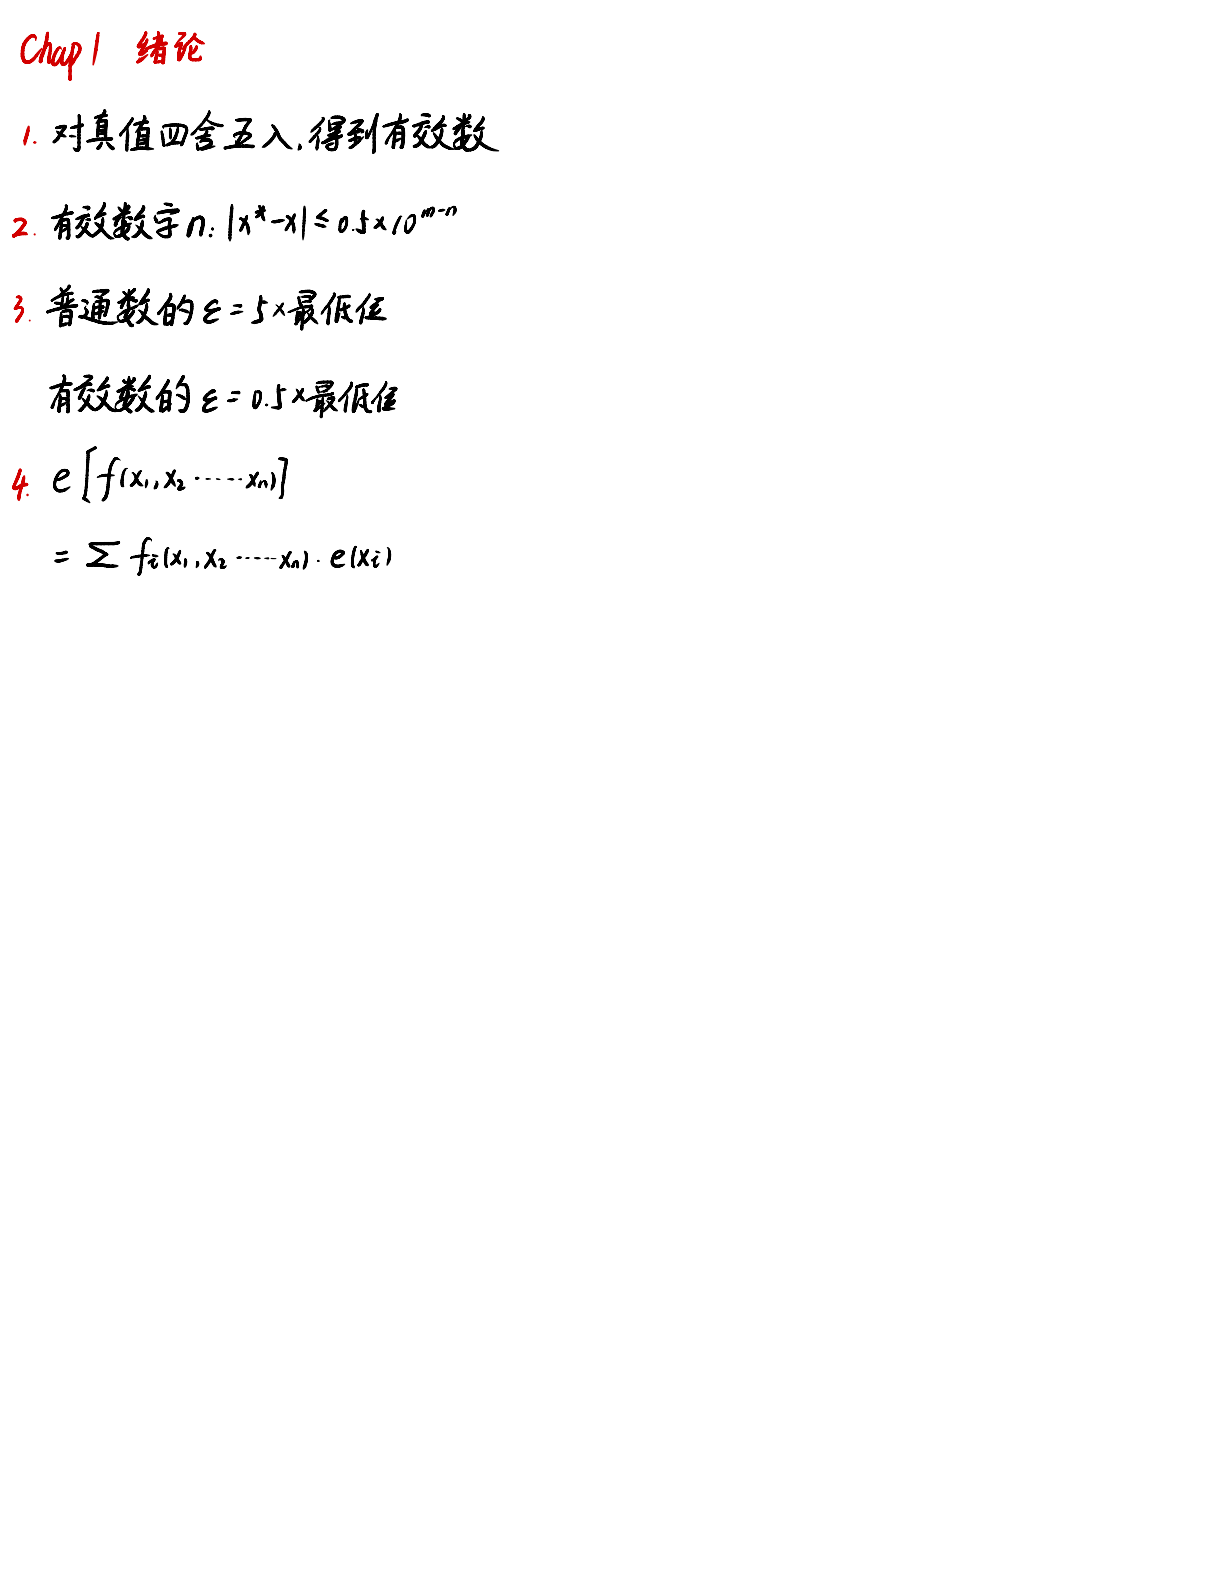 Chap1 绪论
1. 对真值四舍五入,得到有效数
2. 有效数字n: |x*-x|≤0.5×10^{m-n}
3. 普通数的ε=5×最低位
有效数的ε=0.5×最低位
4. e[f(x₁,x₂······xₙ)]
= ∑ fᵢ(x₁,x₂······xₙ)·e(xᵢ)